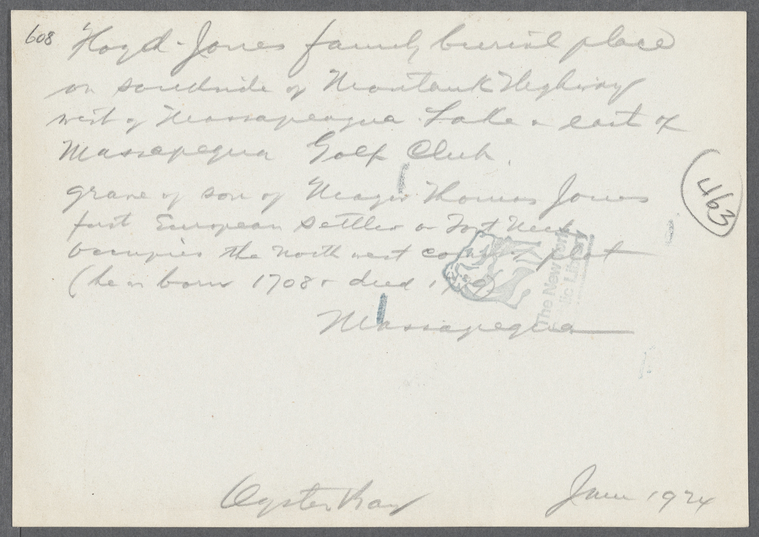 608
Floyd-Jones family burial place
on southside of Montauk Highway
west of Massapequa Lake & east of
Massapequa Golf Club.
grave of son of Major Thomas Jones
first European settler on Fort Neck
occupies the north west corner plot
(he is born 1708 & died
Massapequa
Oyster Bay
June 1924
The New York
Public Library